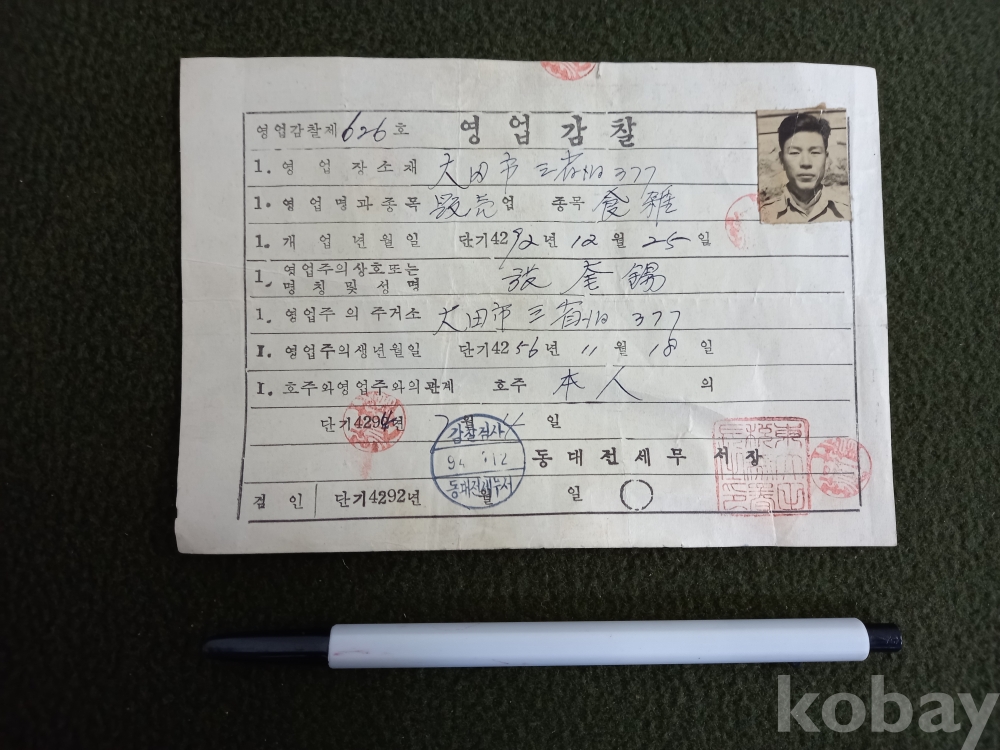 영업감찰제626호 영업감찰
1. 영업장소재 大田市三省洞 377
1. 영업명과종목 販売업 종목 食雜
1. 개업년월일 단기4292년 12월 25일
1. 영업주의상호또는
명칭및성명 奎錫
1. 영업주의 주거소 大田市三省洞 377
1. 영업주의생년월일 단기4256년 11월 18일
1. 호주와영업주와의관계 호주 本人 의
단기429 년 월 일
감찰검사
동대전세무서장
동대전세무서
검인 단기4292년 월 일
kobay